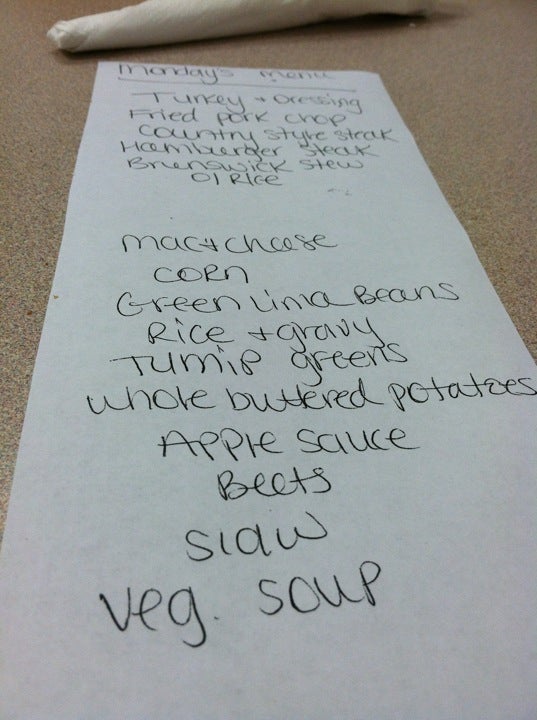 Monday's Menu
Turkey + Dressing
Fried pork chop
Country style steak
Hamburger steak
Brunswick stew
O/Rice
mac + cheese
corn
Green Lima Beans
Rice + gravy
Turnip greens
whole buttered potatoes
Apple sauce
Beets
slaw
veg. soup